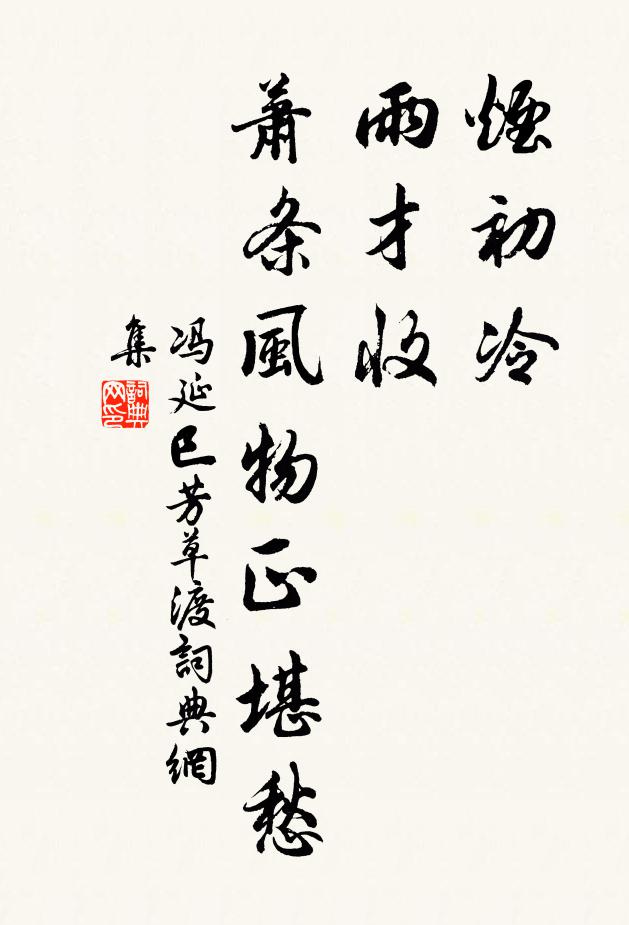 煙初冷
雨才收
蕭条風物正堪愁
冯延巳芳草渡詞典網
集
詞典网印